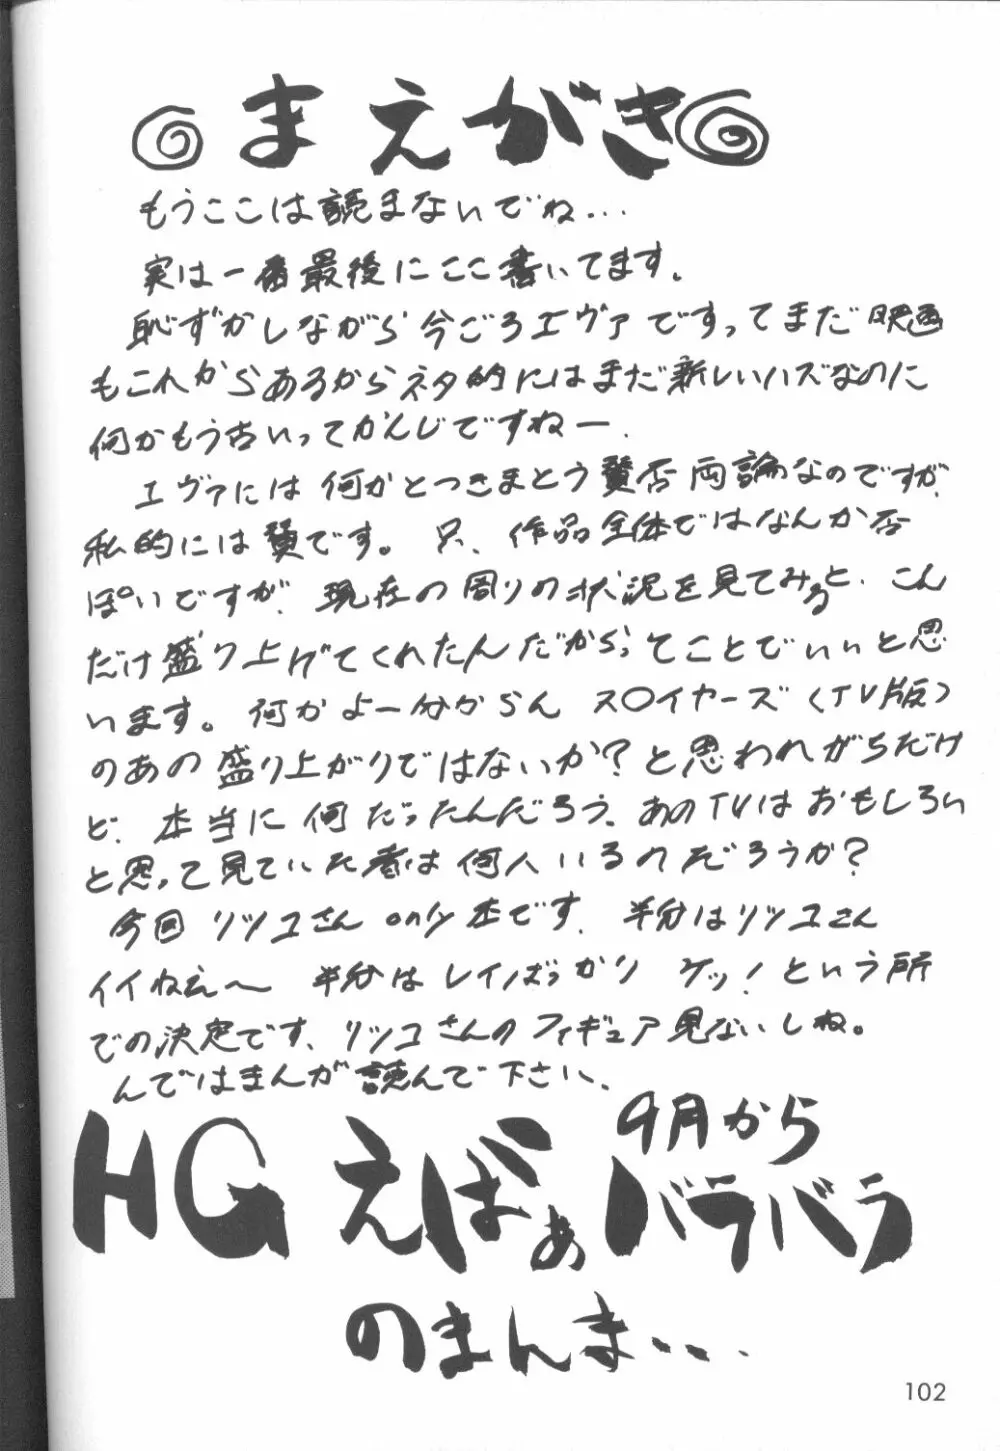 まえがき
もうここは読まないでね…
実は一番最後にここ書いてます。
恥ずかしながら今ごろエヴァですってまだ映画
もこれからあるからネタ的にはまだ新しいハズなのに
何かもう古いってかんじですねー.
エヴァには何かとつきまとう賛否両論なのですが、
私的には賛です。只、作品全体ではなんか否
ぽいですが、現在の周りの状況を見てみると、こん
だけ盛り上げてくれたんだからってことでいいと思
います。何かよー分からん ス〇イヤーズ〈TV版〉
のあの盛り上がりではないか?と思われがちだけ
ど、本当に何だったんだろう。あのTVはおもしろい
と思って見ていた者は何人いるのだろうか?
今回 リツコさん only 本です。半分はリツコさん
イイねえ〜 半分はレイばっかり ケッ!という所
での決定です、リツコさんのフィギュア見ないしね。
んではまんが読んで下さい、
HG えばぁ 9月から
バラバラ
のまんま・・・
102